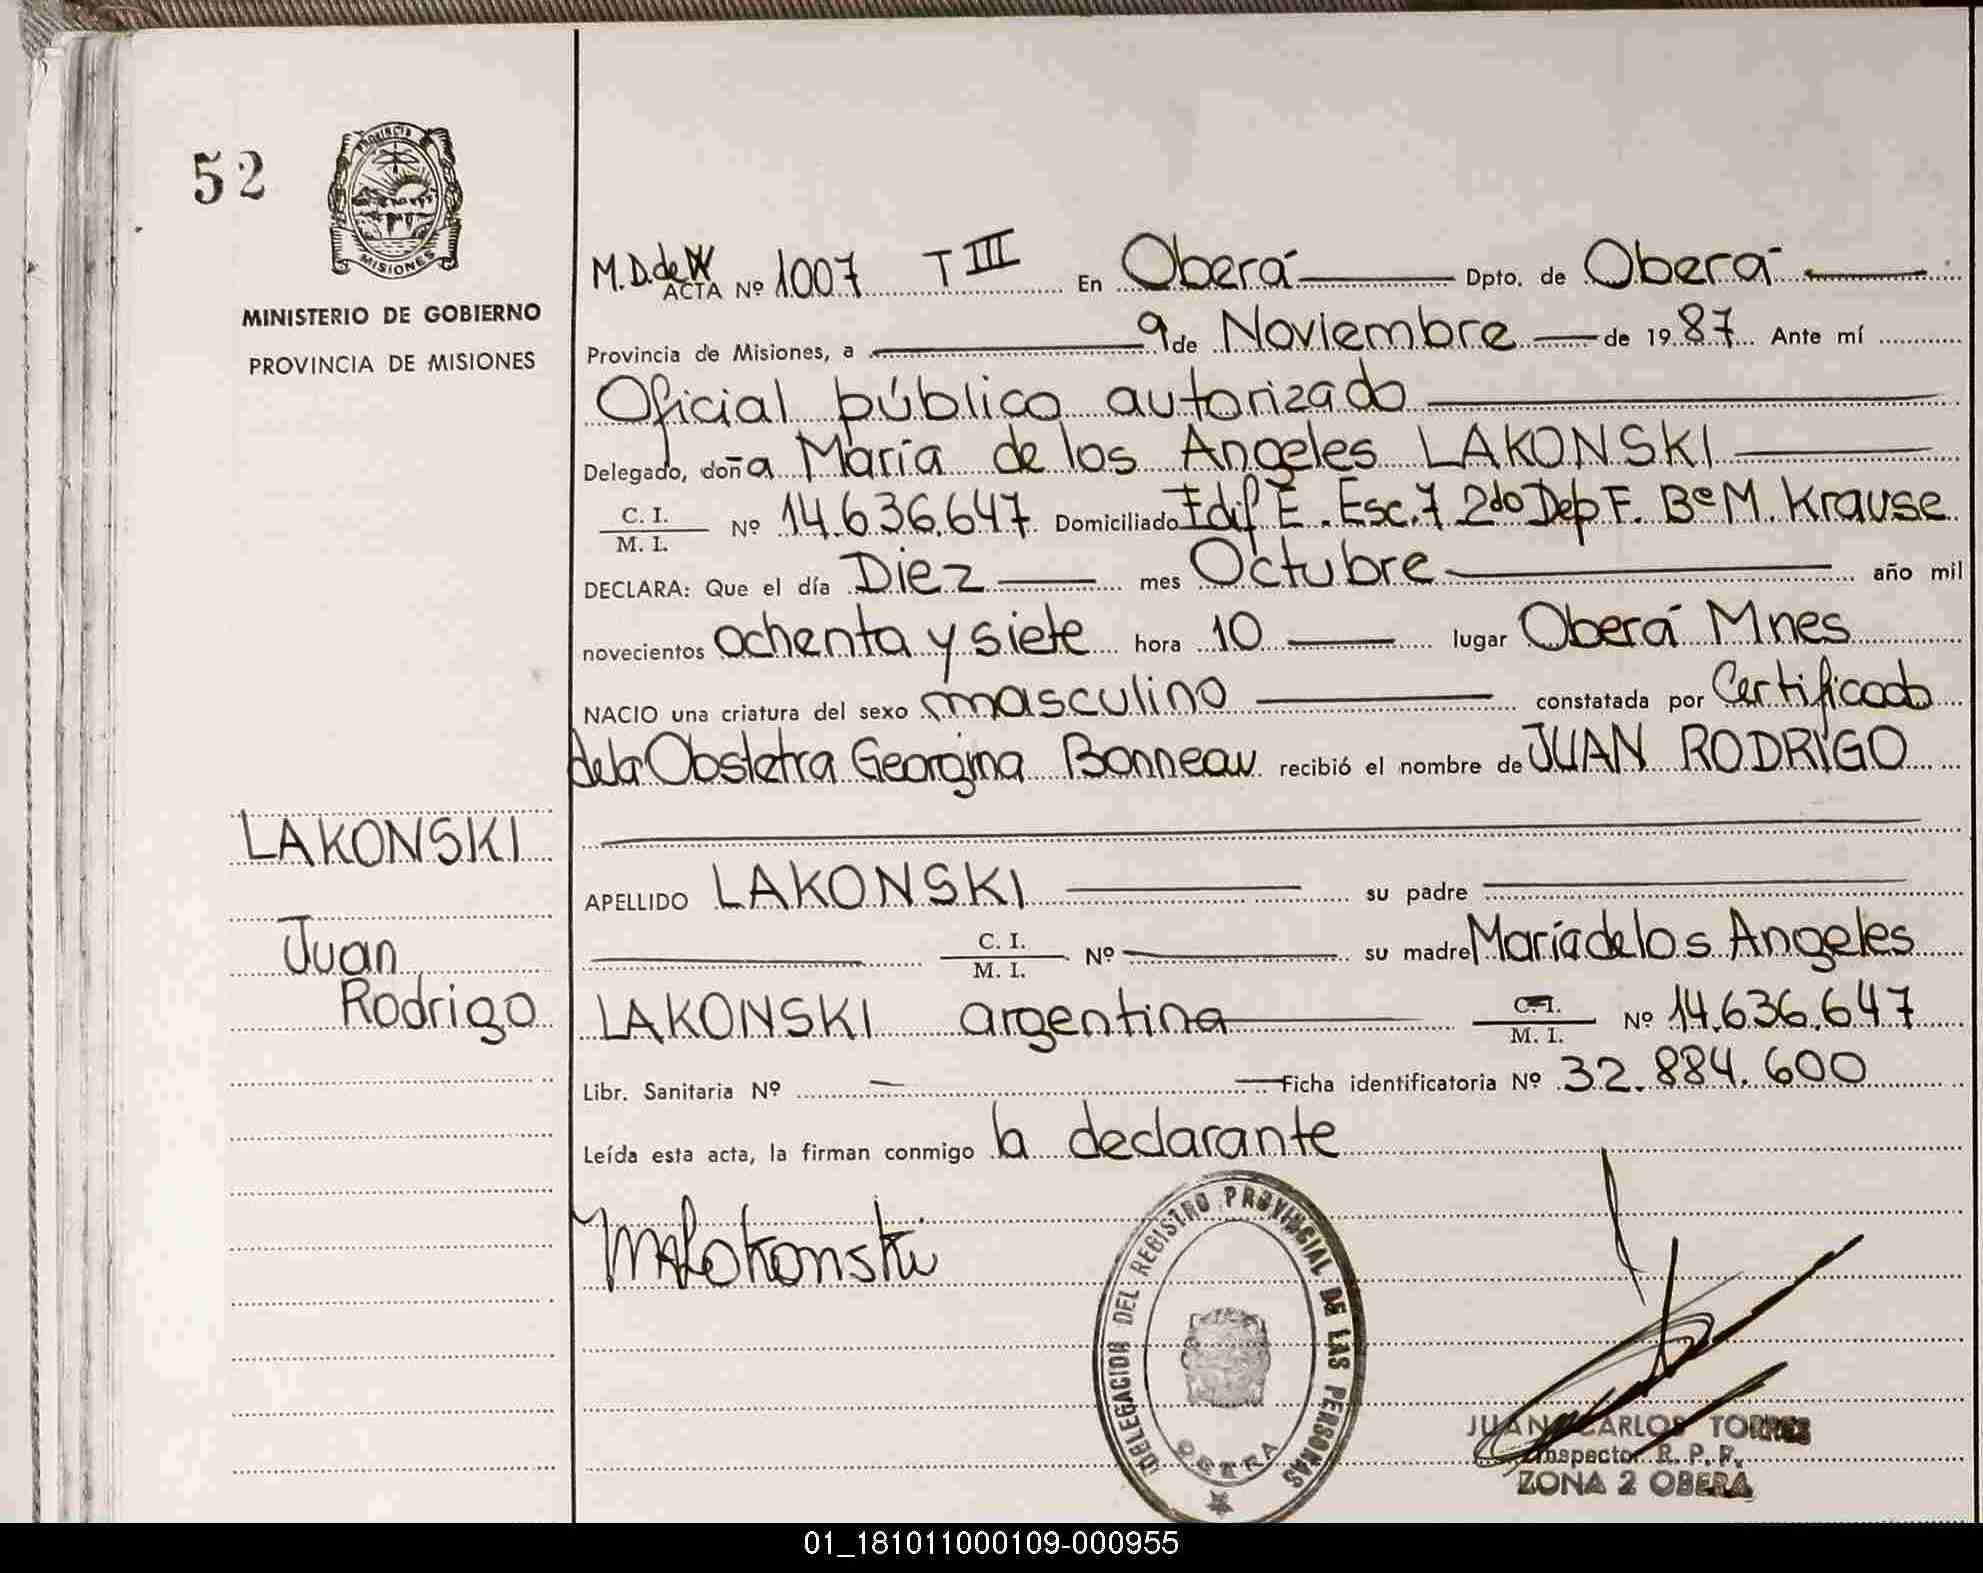 52
PROVINCIA
MISIONES
MINISTERIO DE GOBIERNO
PROVINCIA DE MISIONES
LAKONSKI
Juan
Rodrigo
M.D.de
ACTA Nº 1007 T III En Oberá Dpto. de Oberá
Provincia de Misiones, a 9 de Noviembre de 1987 Ante mí
Oficial público autorizado
Delegado, doña María de los Angeles LAKONSKI
C. I.
M. I. Nº 14.636.647 Domiciliado Edif E. Esc. 7 2do Dep F. Bº M. Krause
DECLARA: Que el día Diez mes Octubre año mil
novecientos ochenta y siete hora 10 lugar Oberá Mnes
NACIO una criatura del sexo masculino constatada por Certificado
de la Obstetra Georgina Bonneau recibió el nombre de JUAN RODRIGO
APELLIDO LAKONSKI su padre
C. I.
M. I. Nº su madre María de los Angeles
LAKONSKI argentina C. I.
M. I. Nº 14.636.647
Libr. Sanitaria Nº Ficha identificatoria Nº 32.884.600
Leída esta acta, la firman conmigo la declarante
MALakonski
DELEGACION DEL REGISTRO PROVINCIAL DE LAS PERSONAS
JUAN CARLOS TORRES
Inspector R. P. P.
ZONA 2 OBERA
01_181011000109-000955